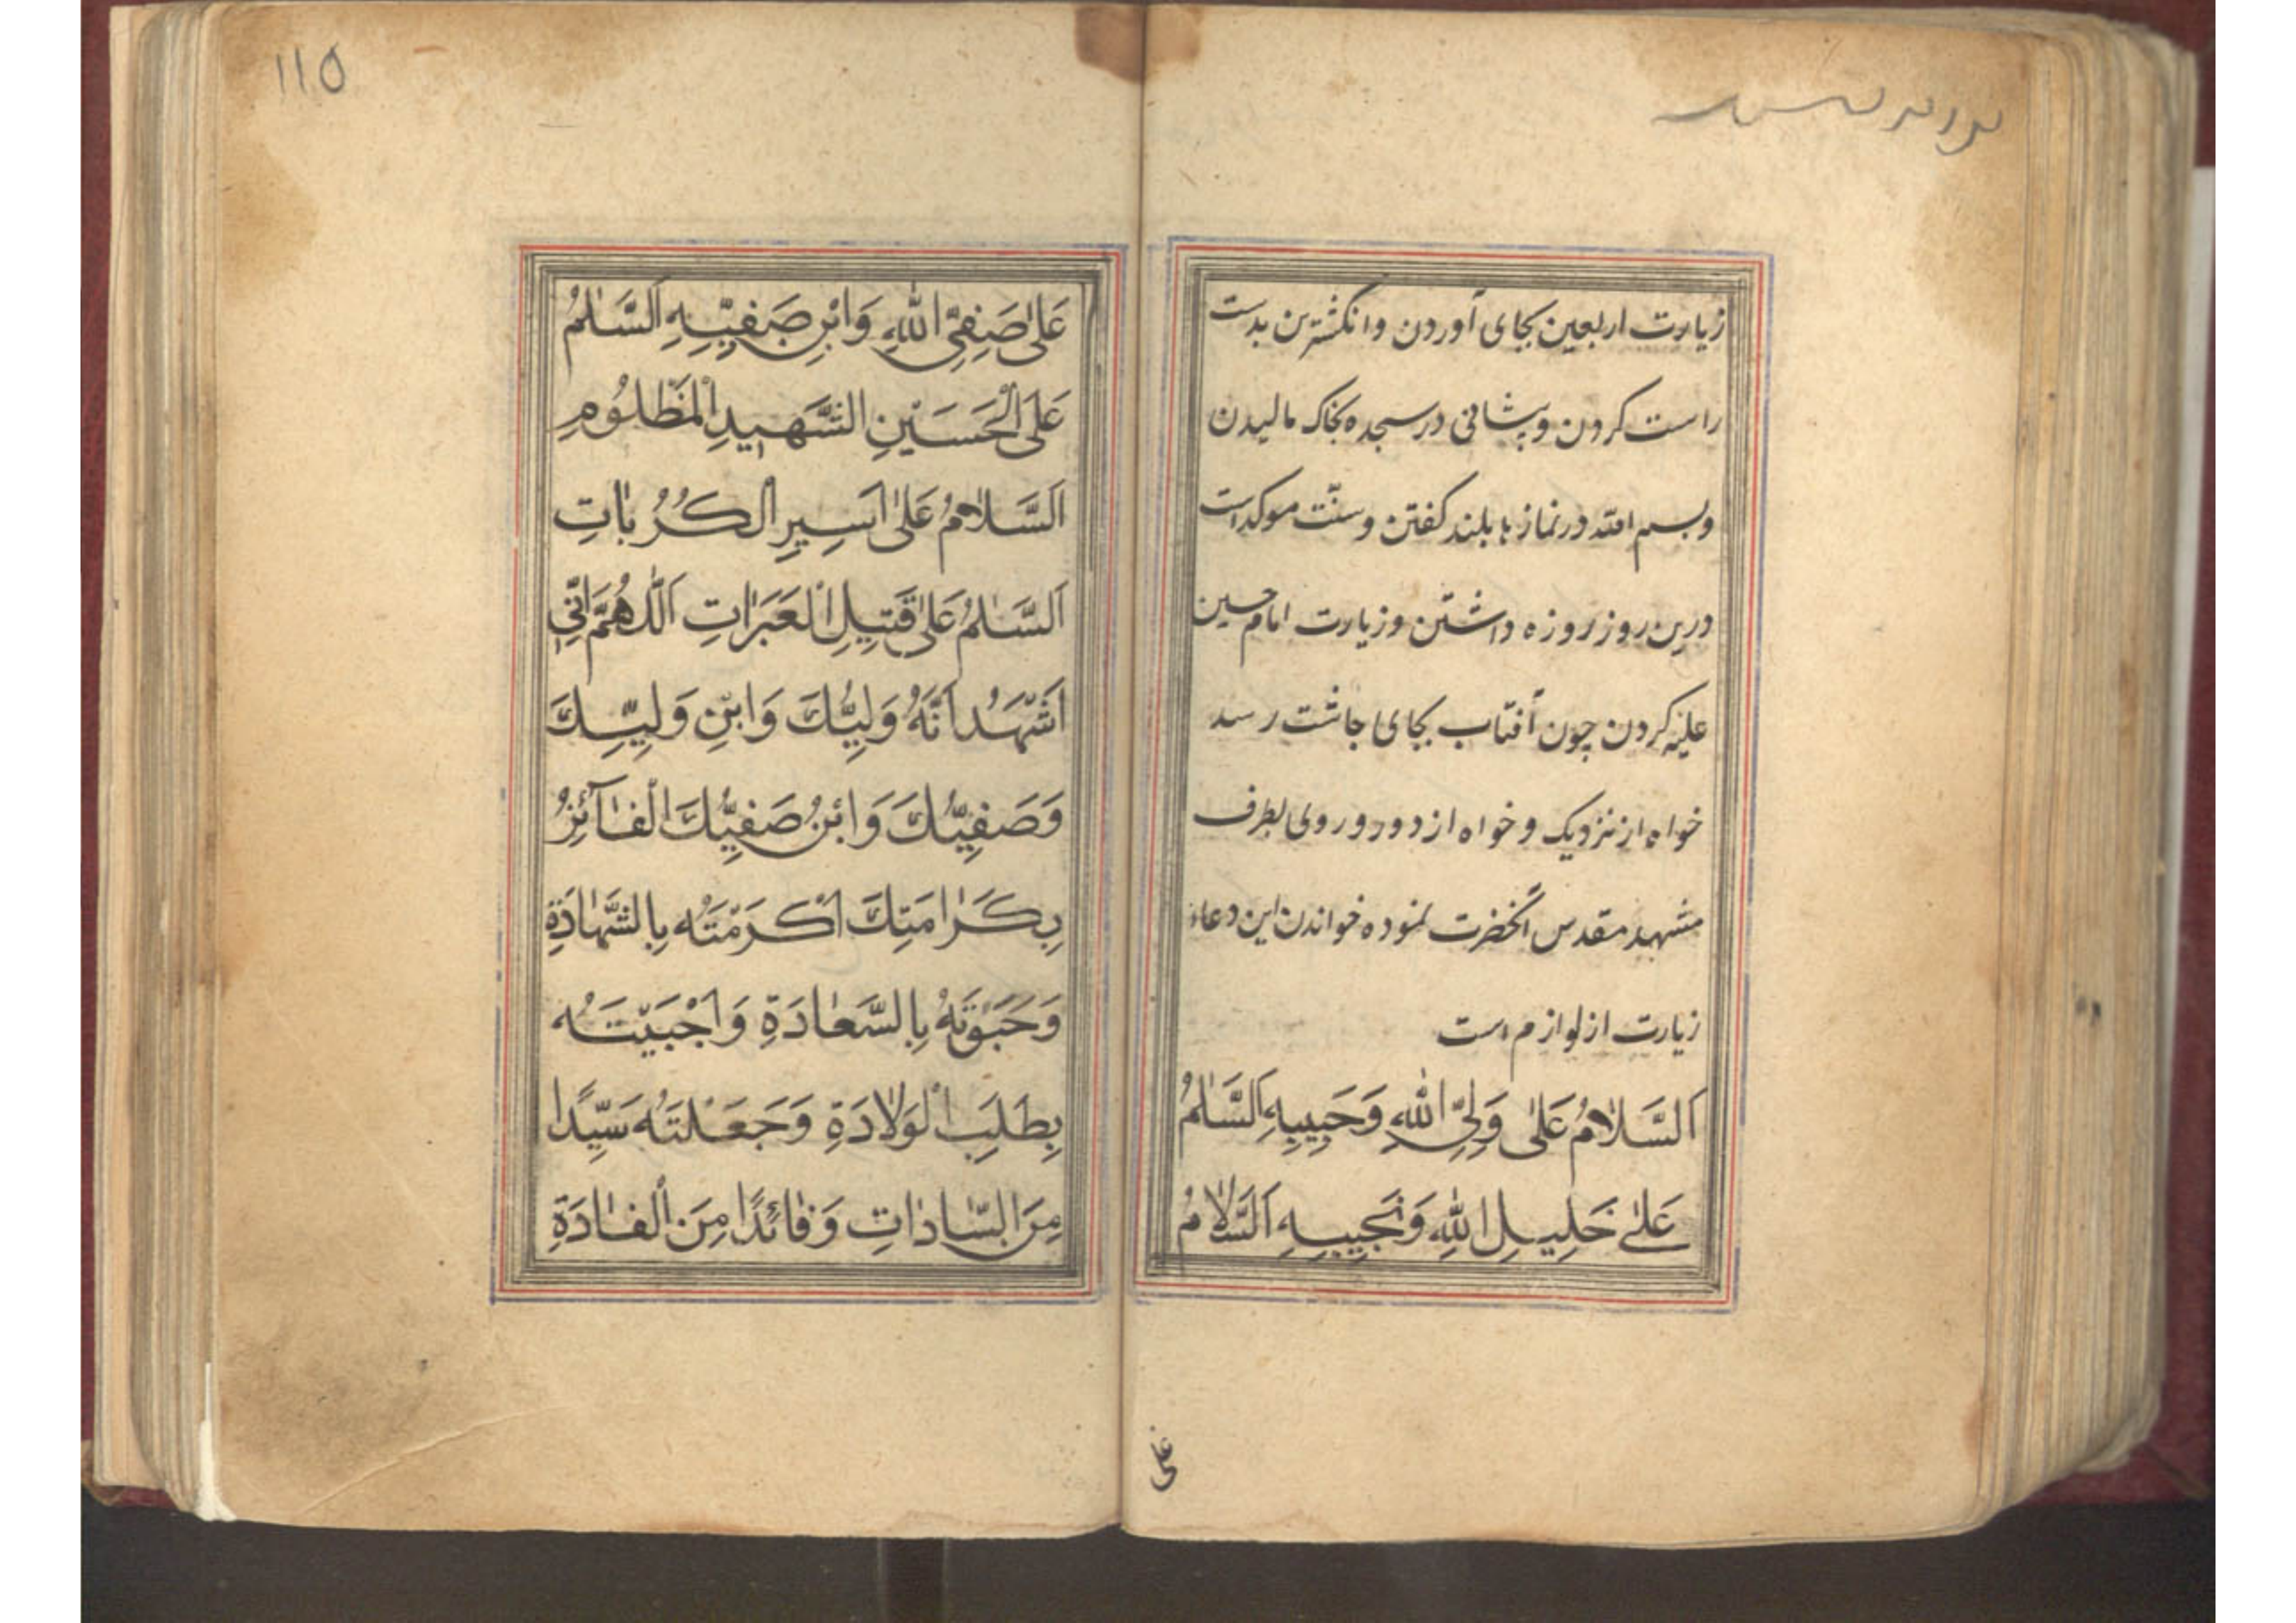 زیارت اربعین بجای آوردن وانکشترین بدست
راست کردن وپیشانی درسجده بخاک مالیدن
وبسم الله درنمازها بلند کفتن وسنّت موکداست
درین روز روزه داشتن وزیارت امام حسین
علیه کردن چون آفتاب بجای چاشت رسد
خواه از نزدیک وخواه از دور وروی بطرف
مشهد مقدس آنحضرت نموده خواندن این دعاء
زیارت از لوازم است
اَلسَّلامُ عَلىٰ وَلِيِّ اللهِ وَحَبِيبِهِ اَلسَّلٰمُ
عَلىٰ خَلِيلِ اللهِ وَنَجِيبِهِ اَلسَّلامُ
على
١١٥
عَلىٰ صَفِيِّ اللهِ وَابْنِ صَفِيِّهِ اَلسَّلٰمُ
عَلَى الْحُسَيْنِ الشَّهِيدِ الْمَظْلُومِ
اَلسَّلامُ عَلىٰ اَسِيرِ الْكُرُبٰاتِ
اَلسَّلٰمُ عَلىٰ قَتِيلِ الْعَبَرٰاتِ اَللّٰهُمَّ اِنِّي
اَشْهَدُ اَنَّهُ وَلِيُّكَ وَابْنِ وَلِيِّكَ
وَصَفِيُّكَ وَابْنُ صَفِيِّكَ الْفٰآئِزُ
بِكَرٰامَتِكَ اَكْرَمْتَهُ بِالشَّهٰادَةِ
وَحَبَوْتَهُ بِالسَّعٰادَةِ وَاجْبَيْتَهُ
بِطَلَبِ الْوَلادَةِ وَجَعَلْتَهُ سَيِّدًا
مِنَ السّٰادٰاتِ وَقٰائِدًا مِنَ الْقٰادَةِ